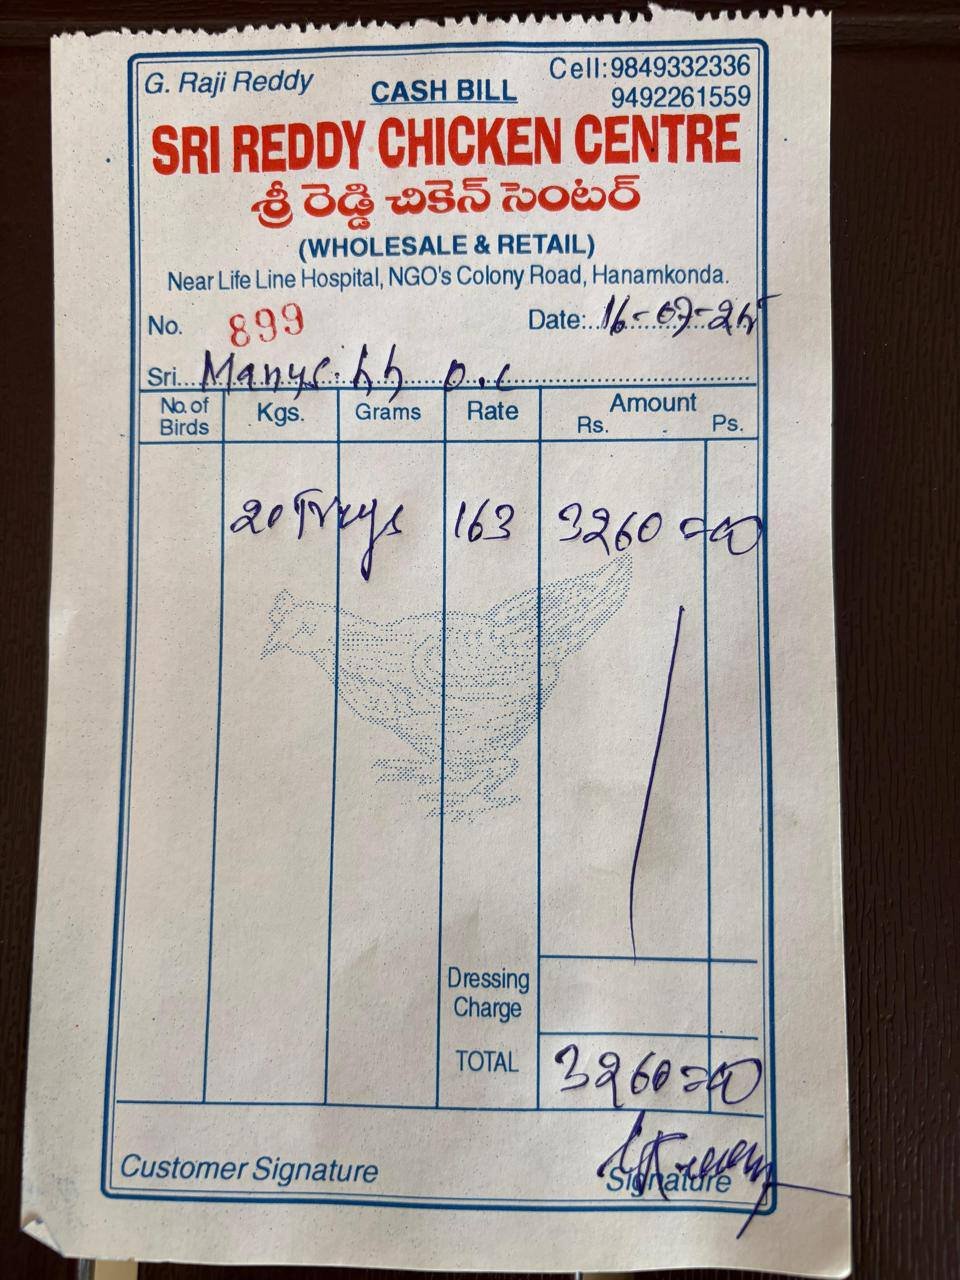 G. Raji Reddy
CASH BILL
Cell:9849332336
9492261559
SRI REDDY CHICKEN CENTRE
శ్రీ రెడ్డి చికెన్ సెంటర్
(WHOLESALE & RETAIL)
Near Life Line Hospital, NGO's Colony Road, Hanamkonda.
No. 899 Date:..16-07-25
Sri...
No. of Birds Kgs. Grams Rate Amount Rs. Ps.
20 Trays 163 3260=00
Dressing Charge
TOTAL 3260=00
Customer Signature Signature